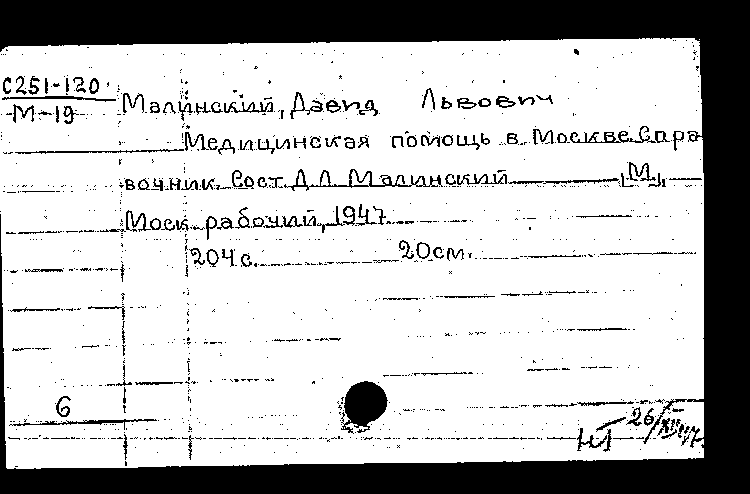 С251-120
М-19
Малинский, Давид Львович
Медицинская помощь в Москве. Спра
вочник. Сост. Д.Л. Малинский , М.,
Моск. рабочий, 1947
204 с. 20 см.
6
26/XII 47